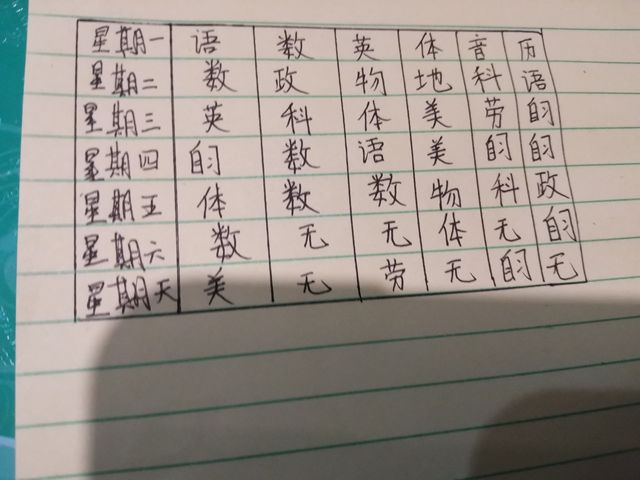 星期一 语 数 英 体 音 历
星期二 数 政 物 地 科 语
星期三 英 科 体 美 劳 自习
星期四 自习 数 语 美 自习 自习
星期五 体 数 数 物 科 政
星期六 数 无 无 体 无 自习
星期天 美 无 劳 无 自习 无